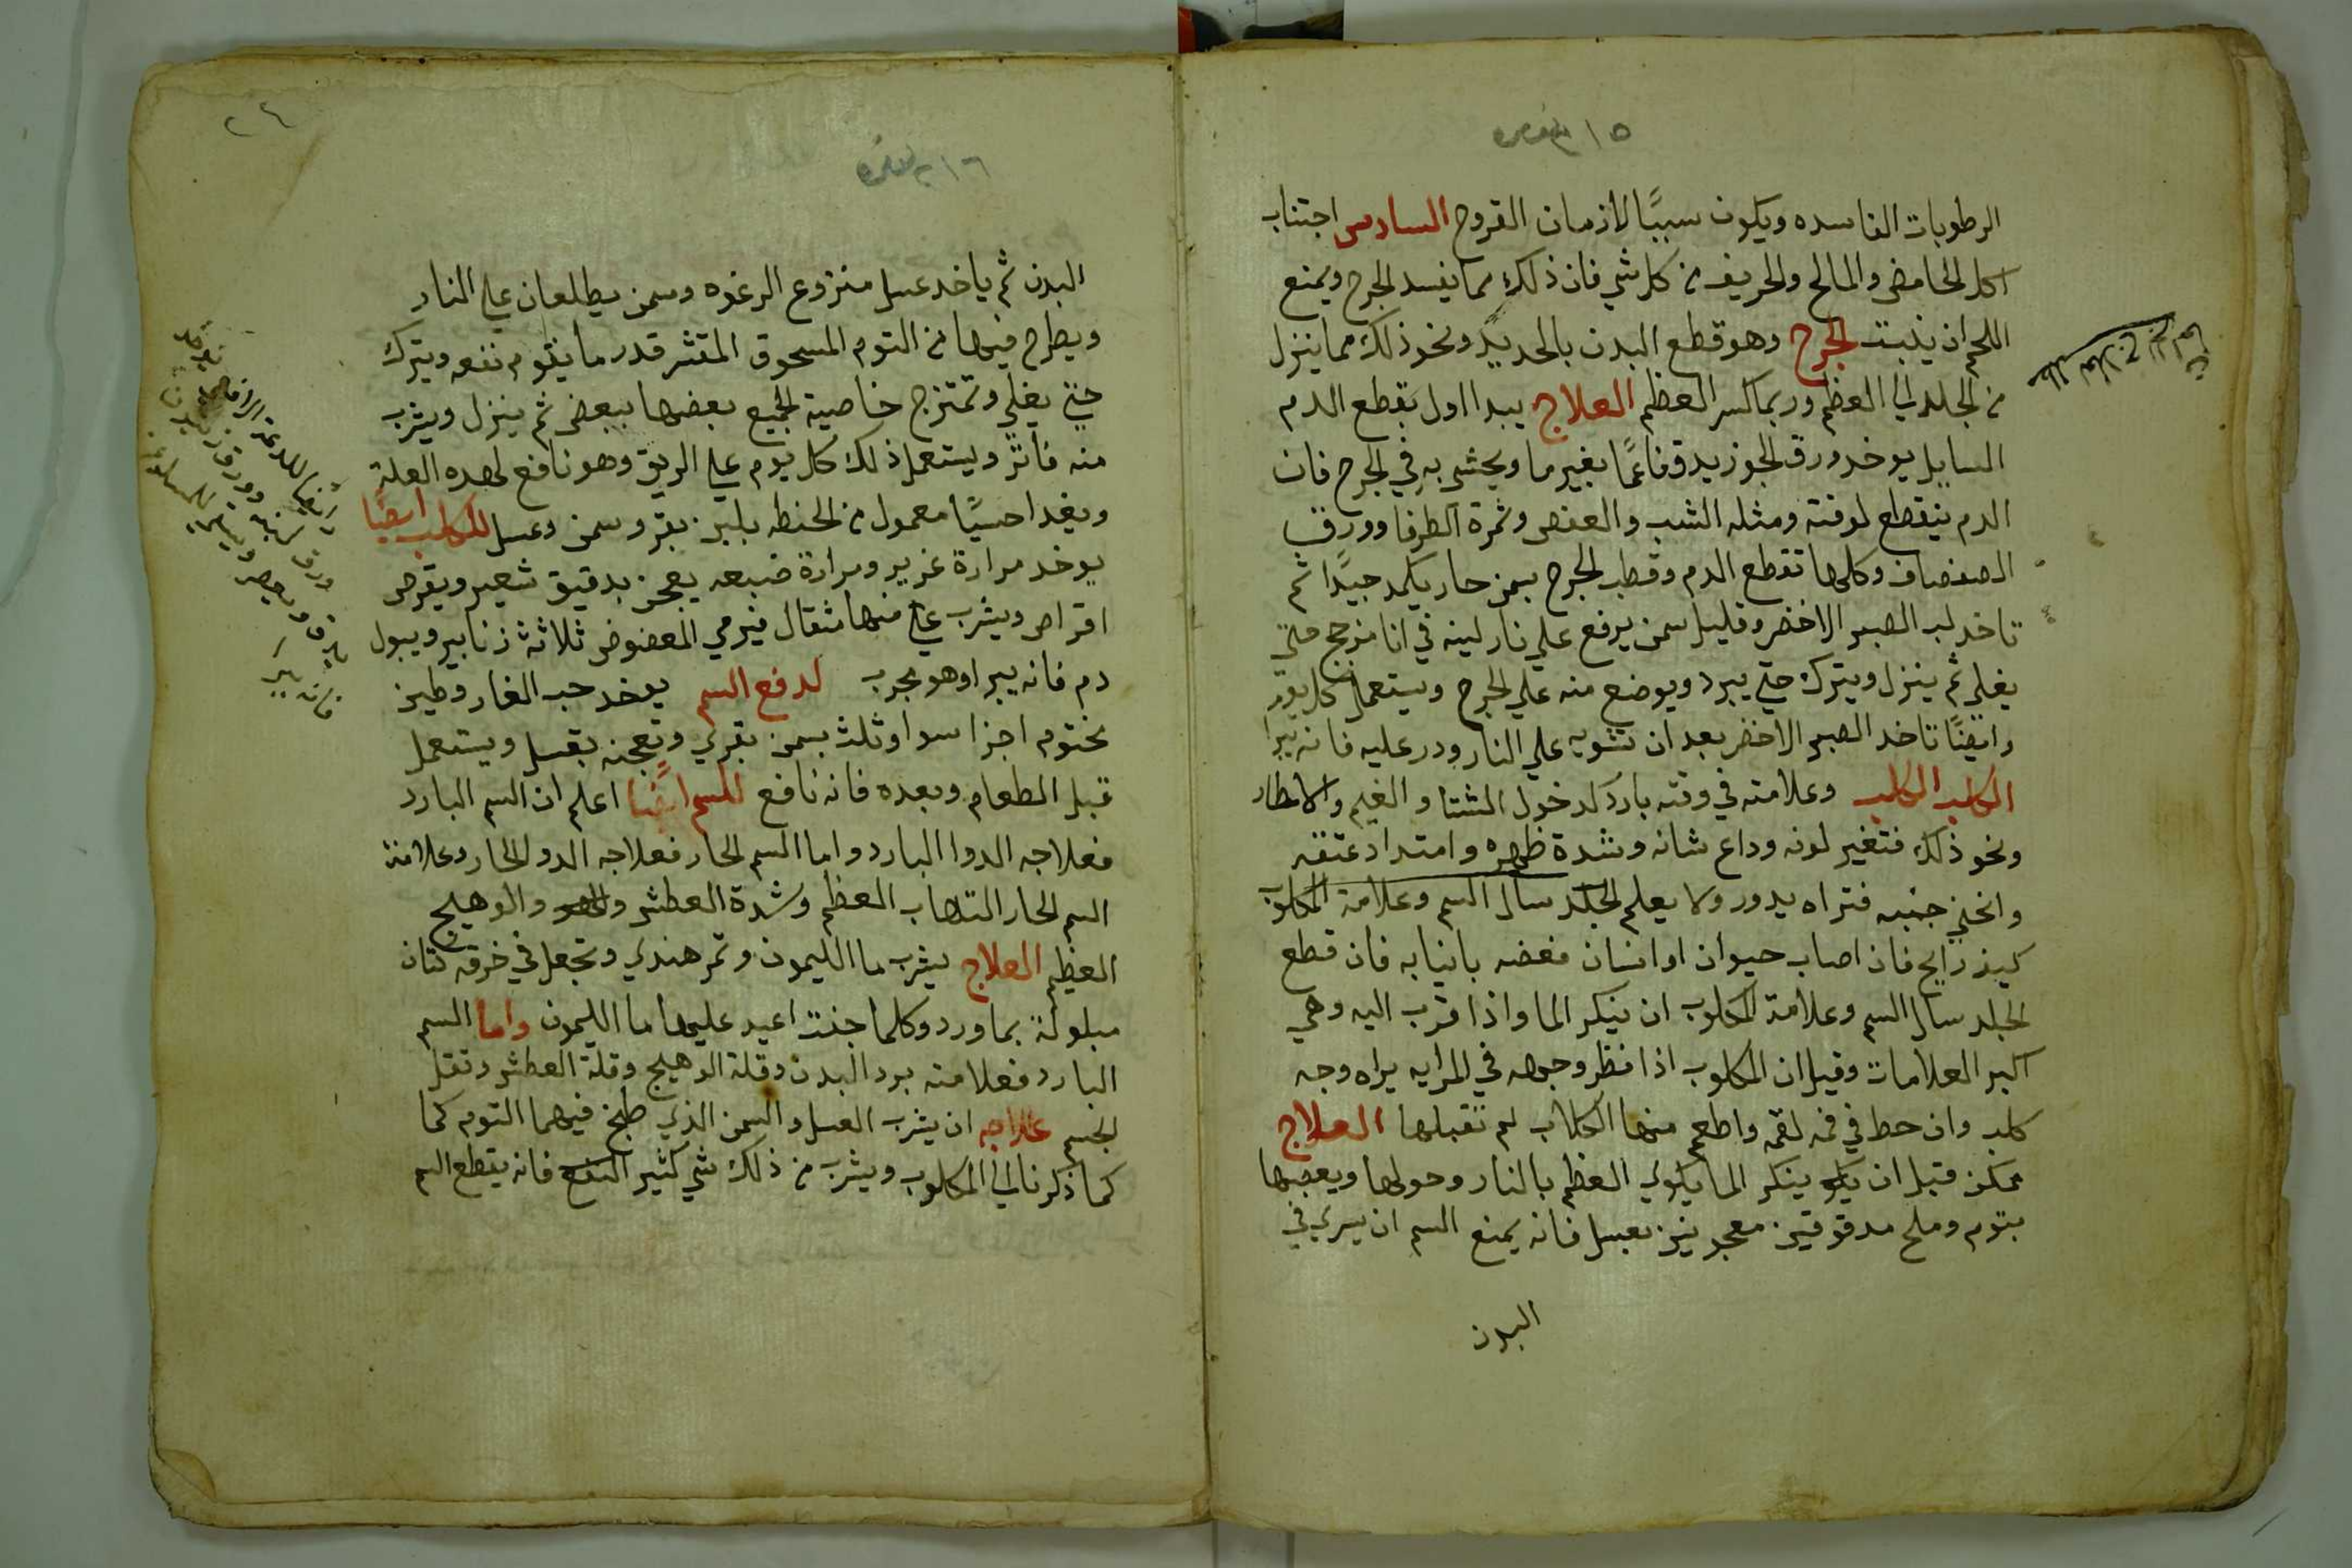 الرطوبات الفاسده ويكون سببًا لازمان القروح السادس اجتناب
اكل الحامض والمالح والحريف من كل شي فان ذلك مما يفسد الجرح ويمنع
اللحم ان ينبت الجرح وهو قطع البدن بالحديد ونحو ذلك مما ينزل
من الجلد الي العظم وربما كسر العظم العلاج يبدا اول بقطع الدم
السايل يوخد ورق الجوز يدق ناعمًا بغير ما ويحشى به في الجرح فان
الدم ينقطع لوقته ومثله الشب والعفص وثمرة الطرفا وورق
الصفصاف وكلها تقطع الدم وقطب الجرح بسمن حار يكمد جيدًا ثم
تاخد لب الصبر الاخضر وقليل سمن يرفع علي نار لينه في انا مزجج حتي
يغلي ثم ينزل ويترك حتي يبرد ويوضع منه علي الجرح ويستعمل كل يوم
وايضًا تاخد الصبر الاخضر بعد ان تشويه علي النار ودر عليه فانه يبرا
الكلب الكلب وعلامته في وقته بارد كدخول الشتا والغيم والامطار
ونحو ذلك فتغير لونه وداع شانه وشدة ظهره وامتداد عنقه
وانحني جنبه فتراه يدور ولا يعلم الجلد سال السم وعلامة المكلوب
كيف رايح فان اصاب حيوان او انسان فعضه بانيابه فان قطع
الجلد سال السم وعلامة المكلوب ان ينكر الما واذا قرب اليه وهي
اكبر العلامات وقيل ان المكلوب اذا نظر وجهه في المرايه يراه وجه
كلب وان حط في فمه لقمه واطعم منها الكلاب لم تقبلها العلاج
ممكن قبل ان ينكر الما يكوي العظم بالنار وحولها ويعصبها
بتوم وملح مدقوقين معجونين بعسل فانه يمنع السم ان يسري في
البدن
البدن ثم ياخد عسل منزوع الرغوه وسمن يطلعان علي النار
ويطرح فيها من التوم المسحوق المقشر قدر ما يقوم نفعه ويترك
حتي يغلي وتمتزج خاصية الجميع بعضها ببعض ثم ينزل ويشرب
منه فاتر ويستعمل ذلك كل يوم علي الريق وهو نافع لهده العلة
ويغدا حسيًا معمول من الحنطه بلبن بقر وسمن وعسل للكلب ايضًا
يوخد مرارة غزير ومرارة ضبعه يعجن بدقيق شعير ويقرص
اقراص ويشرب منها مثقال فيرمي المعضوض ثلاثة زنابير ويبول
دم فانه يبرا وهو مجرب لدفع السم يوخد حب الغار وطين
مختوم اجزا سوا وثلث بسمن بقري وتعجنه بعسل ويستعمل
قبل الطعام وبعده فانه نافع للسم ايضًا اعلم ان السم البارد
فعلاجه الدوا البارد واما السم الحار فعلاجه الدوا الحار وعلامة
السم الحار التهاب العظم وشدة العطش والوهيج
العظيم العلاج يشرب ما الليمون وتمر هندي وتجعل في خرقه كتان
مبلولة بماورد وكلما جفت اعيد عليها ما الليمون واما السم
البارد فعلامته برد البدن وقلة الوهيج وقلة العطش وثقل
الجسم علاجه ان يشرب العسل والسمن الذي طبخ فيهما التوم كما
كما ذكرنا الي المكلوب ويشرب من ذلك شي كثير فانه يقطع السم